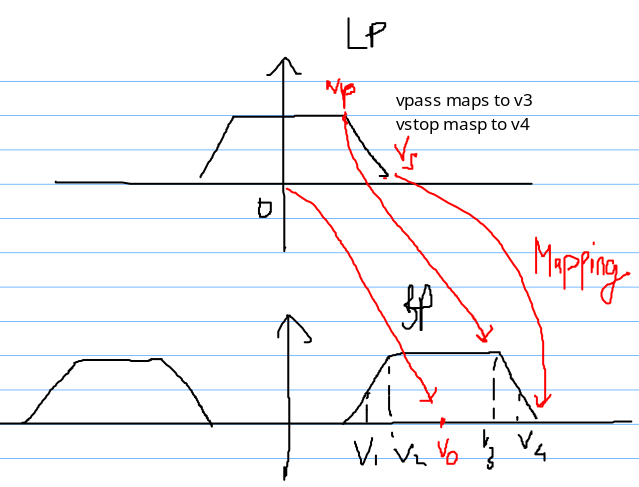 LP
vp
vpass maps to v3
vstop masp to v4
Vs
0
Mapping
BP
V1 V2 V0 V3 V4